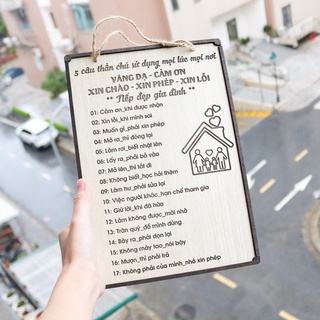 5 câu thần chú sử dụng mọi lúc mọi nơi
VÂNG DẠ - CẢM ƠN
XIN CHÀO - XIN PHÉP - XIN LỖI
** Nếp đẹp gia đình **
01: Cảm ơn_khi được nhận
02: Xin lỗi_khi mình sai
03: Muốn gì_phải xin phép
04: Mở ra_thì đóng lại
05: Làm rơi_biết nhặt lên
06: Lấy ra_phải bỏ vào
07: Mở lên_thì tắt đi
08: Không biết_học hỏi thêm
09: Làm hư_phải sửa lại
10: Việc người khác_hạn chế tham gia
11: Giữ lời_khi đã hứa
12: Làm không được_mời nhờ
13: Trân quý_đồ mình dùng
14: Bày ra_phải dọn lại
15: Không mày tao_nói bậy
16: Mượn_thì phải trả
17: Không phải của mình_nhớ xin phép